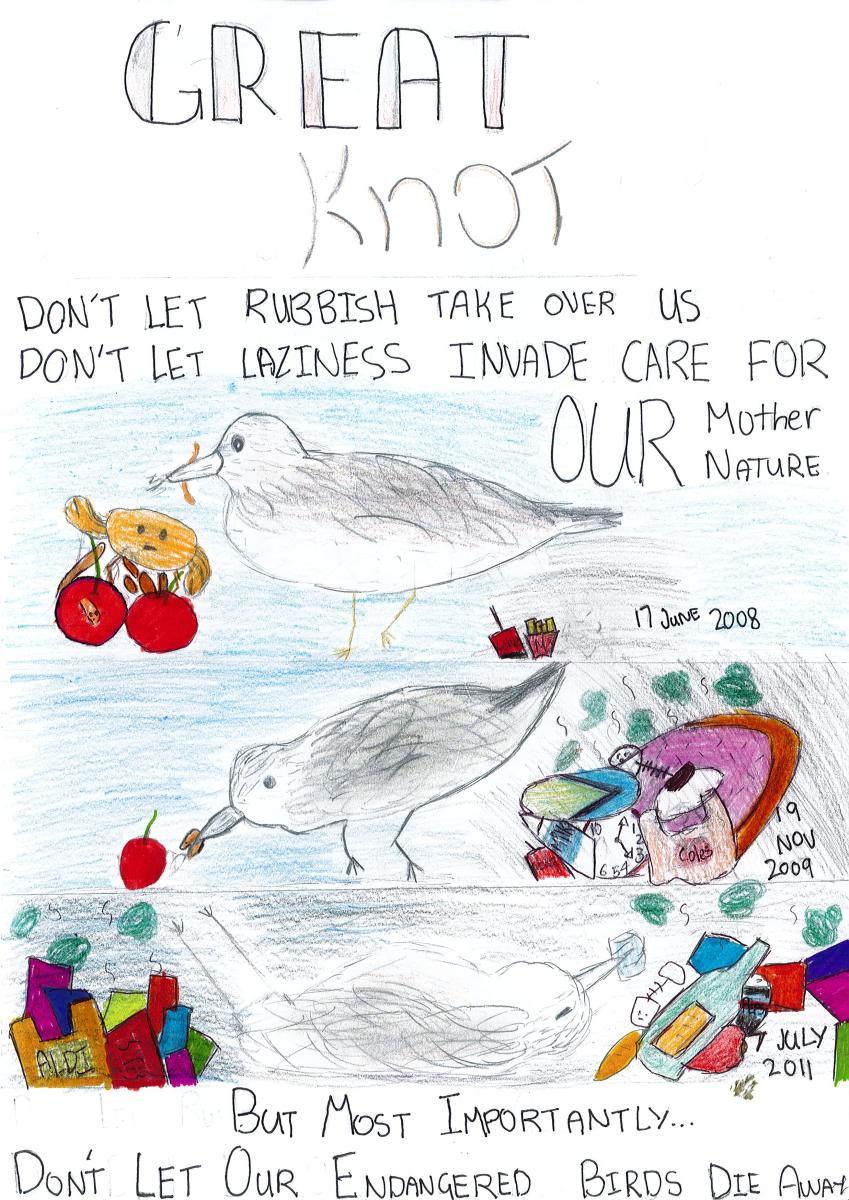 GREAT
KnOT
DON'T LET RUBBISH TAKE OVER US
DON'T LET LAZINESS INVADE CARE FOR
OUR Mother
NATURE
17 JUNE 2008
Coles
10
1
2
3
6 5 4
19
NOV
2009
ALDI
7 JULY
2011
BUT MOST IMPORTANTLY...
DON'T LET OUR ENDANGERED BIRDS DIE AWAY